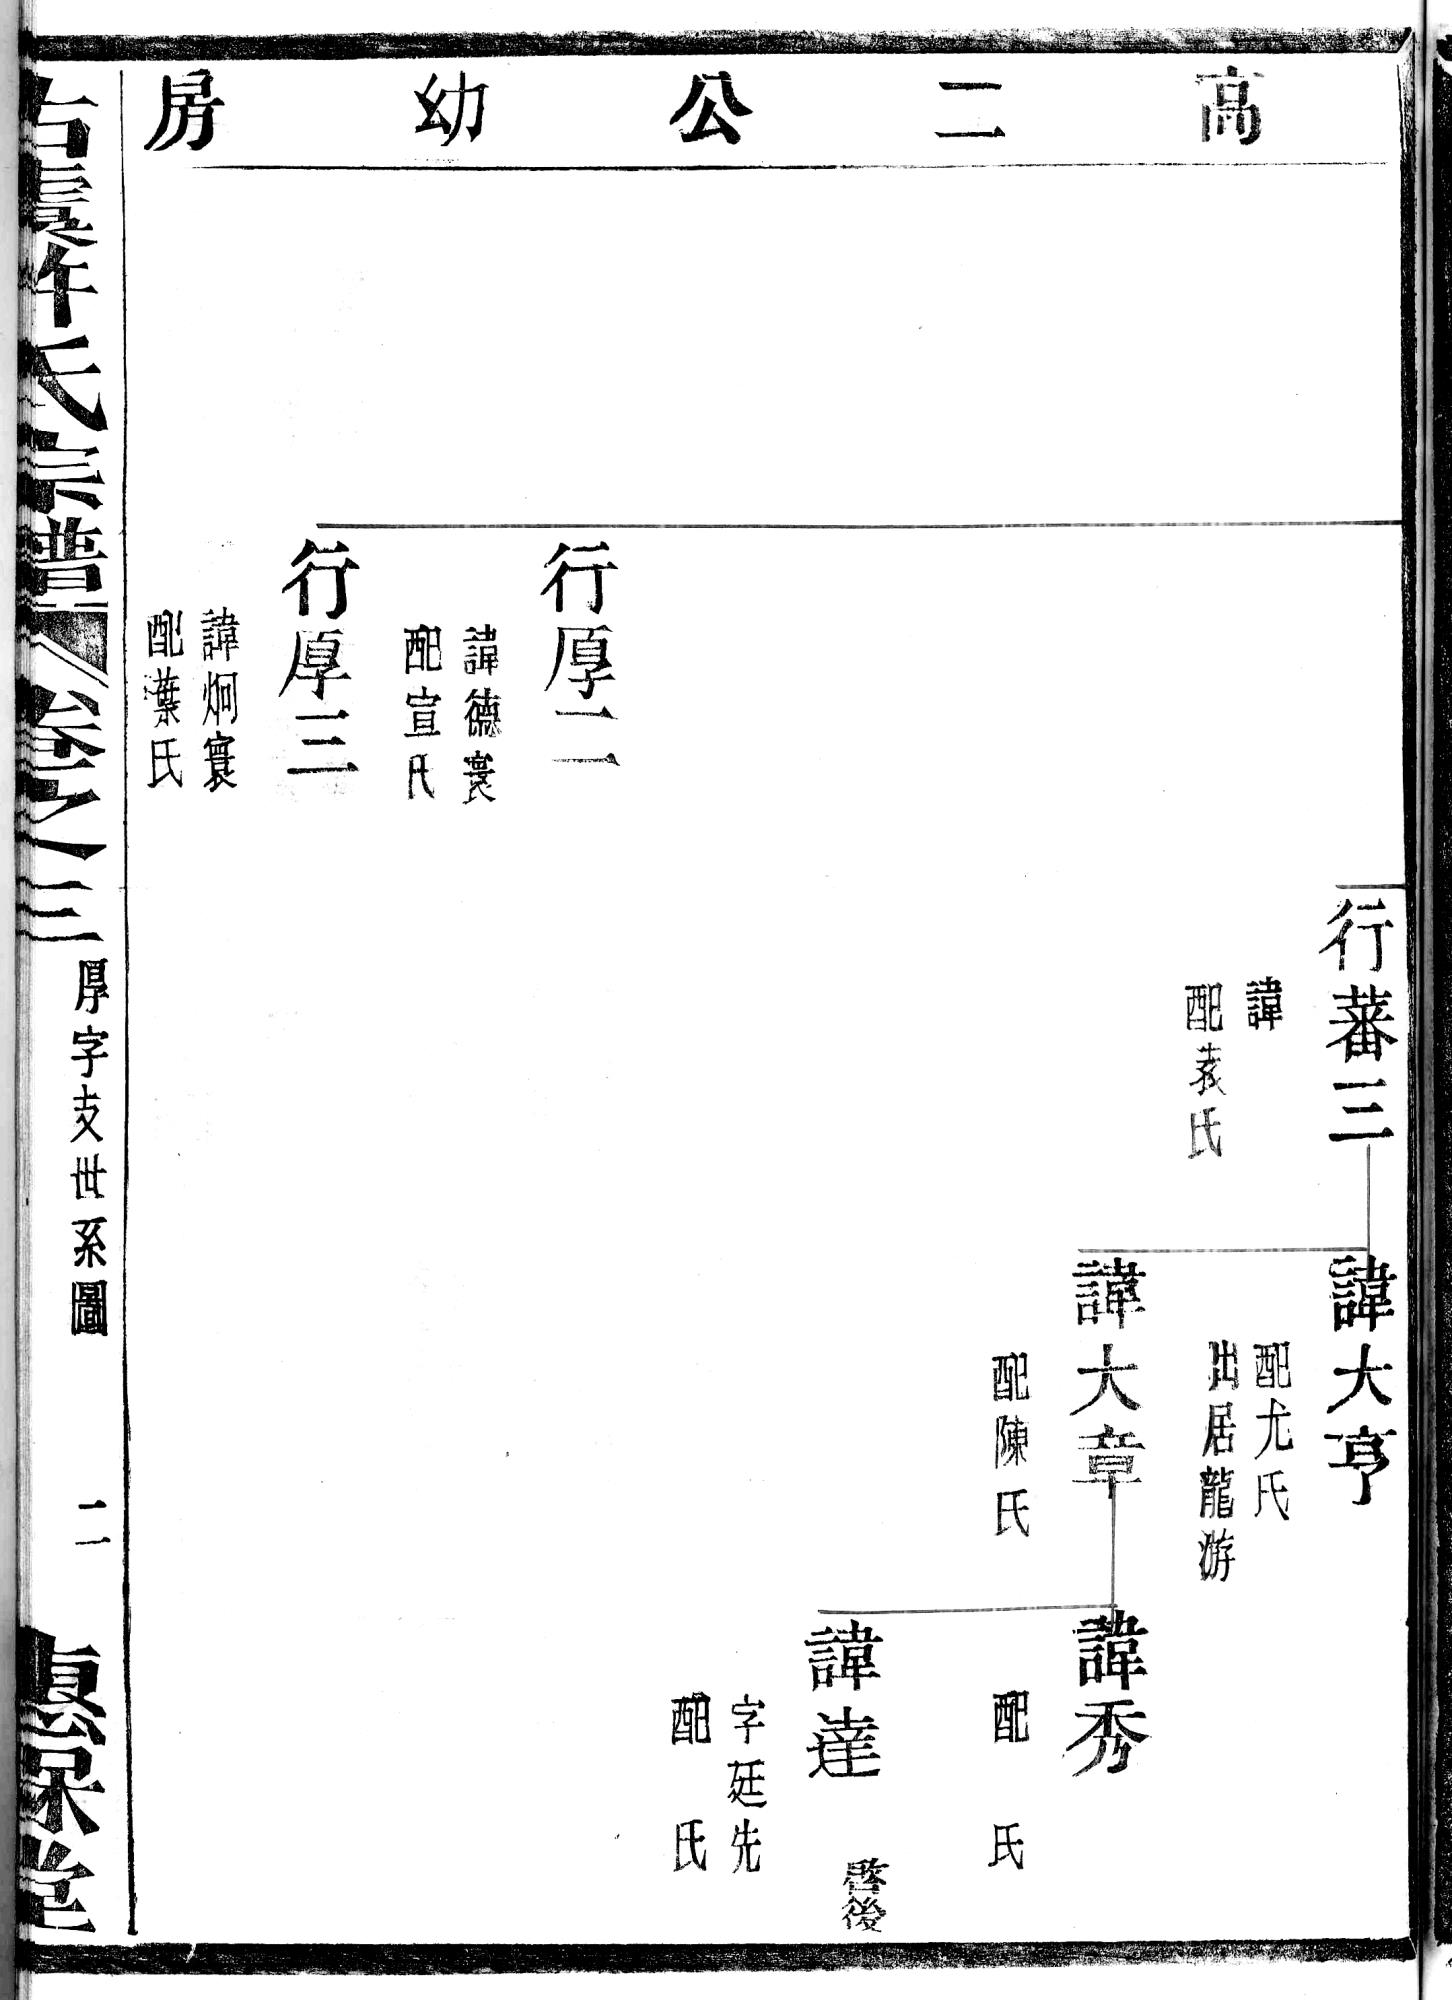 高二公幼房
行厚二
諱德寰
配宣氏
行厚三
諱炯寰
配葉氏
行蕃三
諱
配袁氏
諱大亨
配尤氏
出居龍游
諱大章
配陳氏
諱秀
配　氏
諱達
啓後
字廷先
配　氏
古虞許氏宗譜
卷之三
厚字支世系圖
二
惠保堂